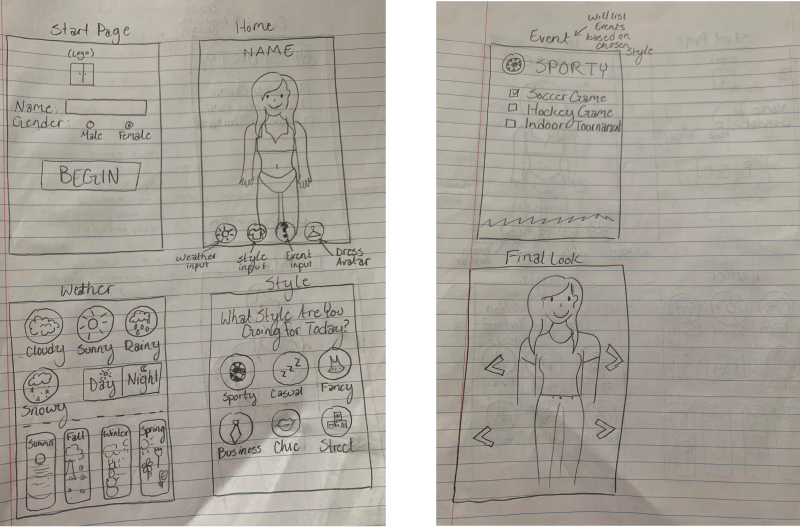 Start Page
(Logo)
Name:
Gender:
Male
Female
BEGIN
Home
NAME
Weather input
Style input
Event input
Dress Avatar
Weather
Cloudy
Sunny
Rainy
Snowy
Day
Night
Summer
Fall
Winter
Spring
Style
What Style Are You
Going for Today?
Sporty
Casual
Fancy
Business
Chic
Street
Will list
Events
based on
chosen
Style
Event
SPORTY
Soccer Game
Hockey Game
Indoor Tournament
Final Look